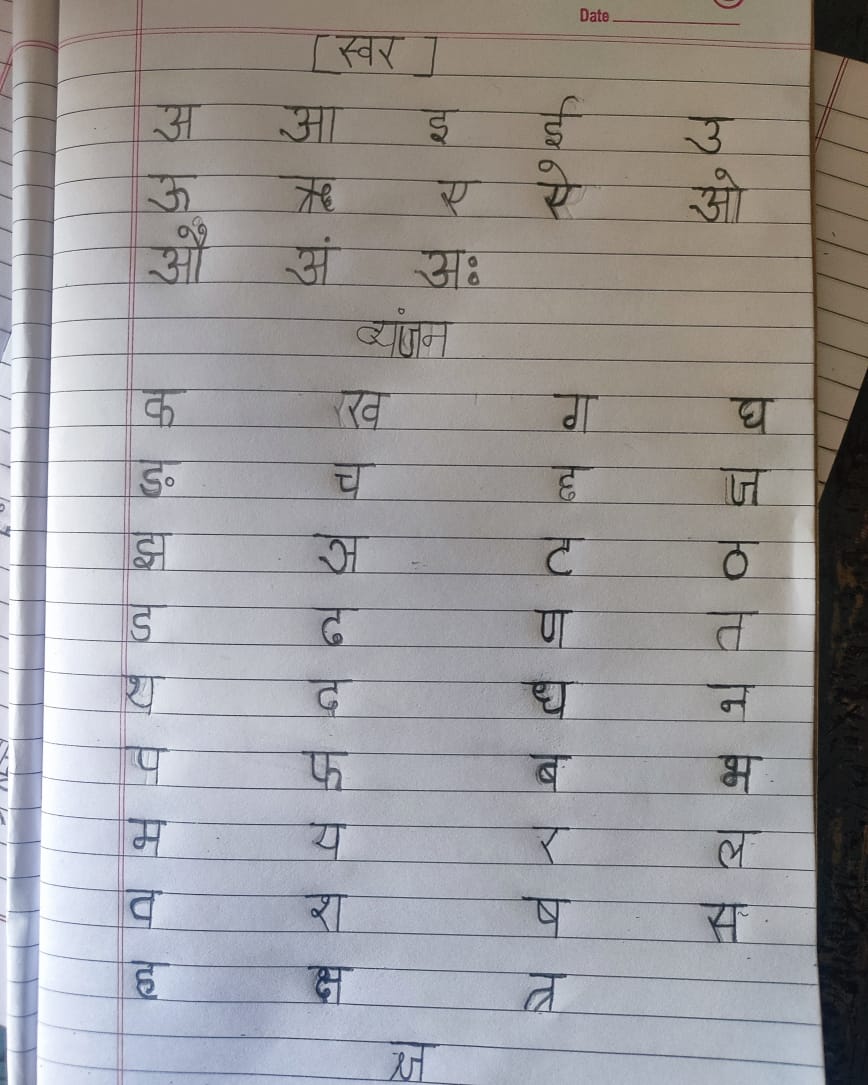 Date
[स्वर]
अ आ इ ई उ
ऊ ऋ ए ऐ ओ
औ अं अः
व्यंजन
क ख ग घ
ङ च छ ज
झ ञ ट ठ
ड ढ ण त
थ द ध न
प फ ब भ
म य र ल
व श ष स
ह क्ष त्र
ज्ञ